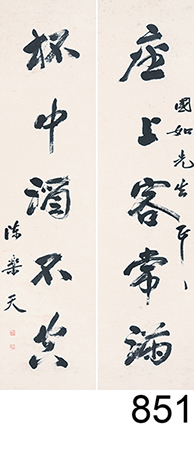 座上客常滿
國如先生正
杯中酒不空
陳樂天
851